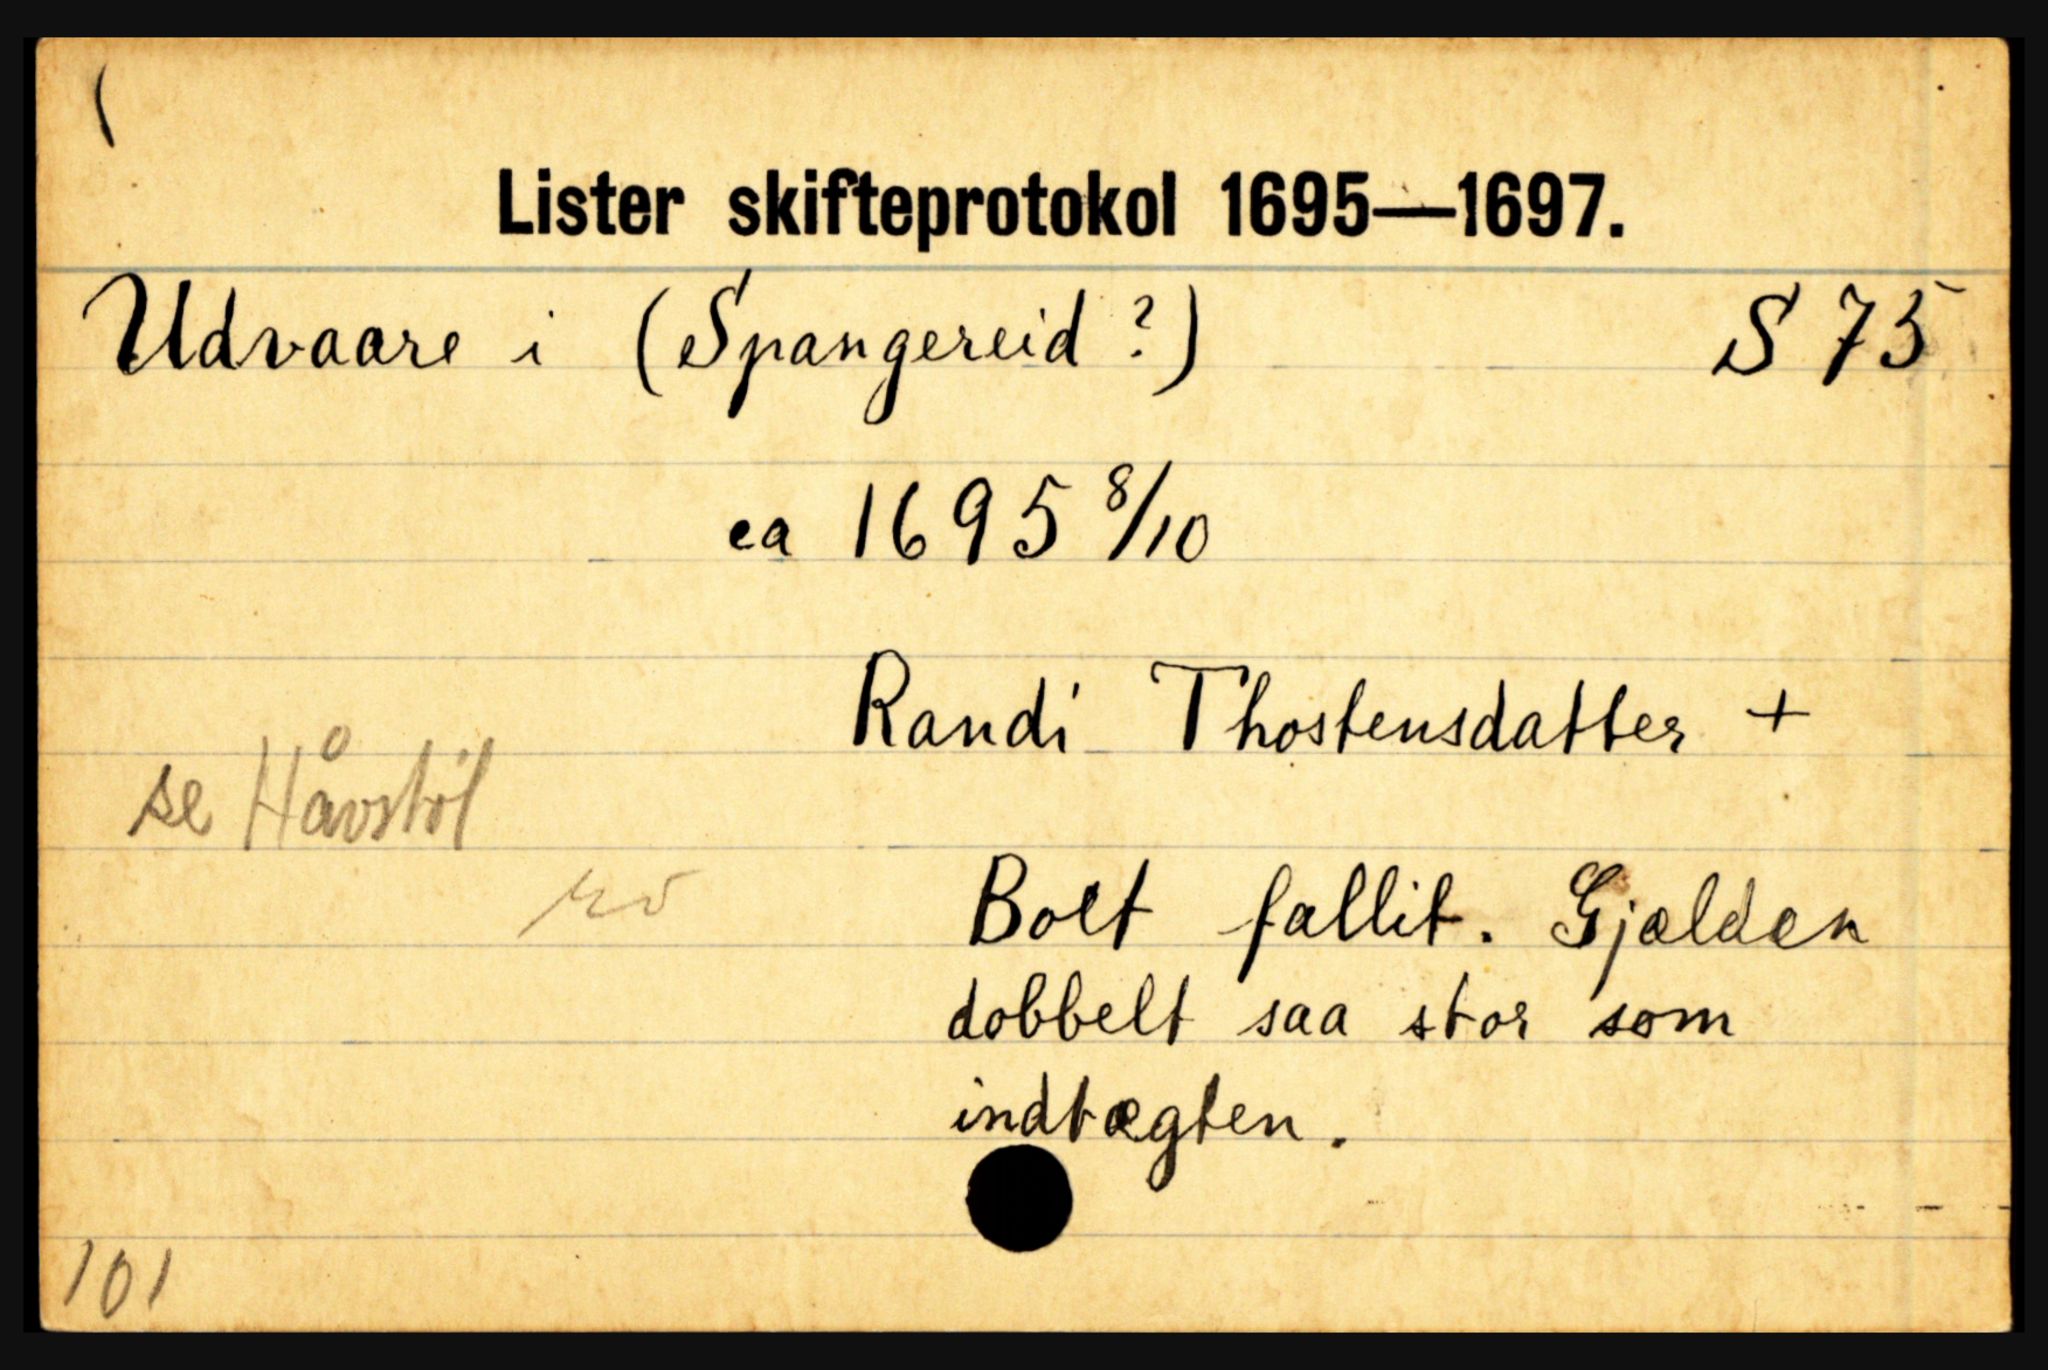 (
Lister skifteprotokol 1695—1697.
Udvaare i (Spangereid?) S 75
ca 1695 8/10
Randi Thostensdatter +
se Håvstöl
Boet fallit. Gjælden
dobbelt saa stor som
indtægten.
101